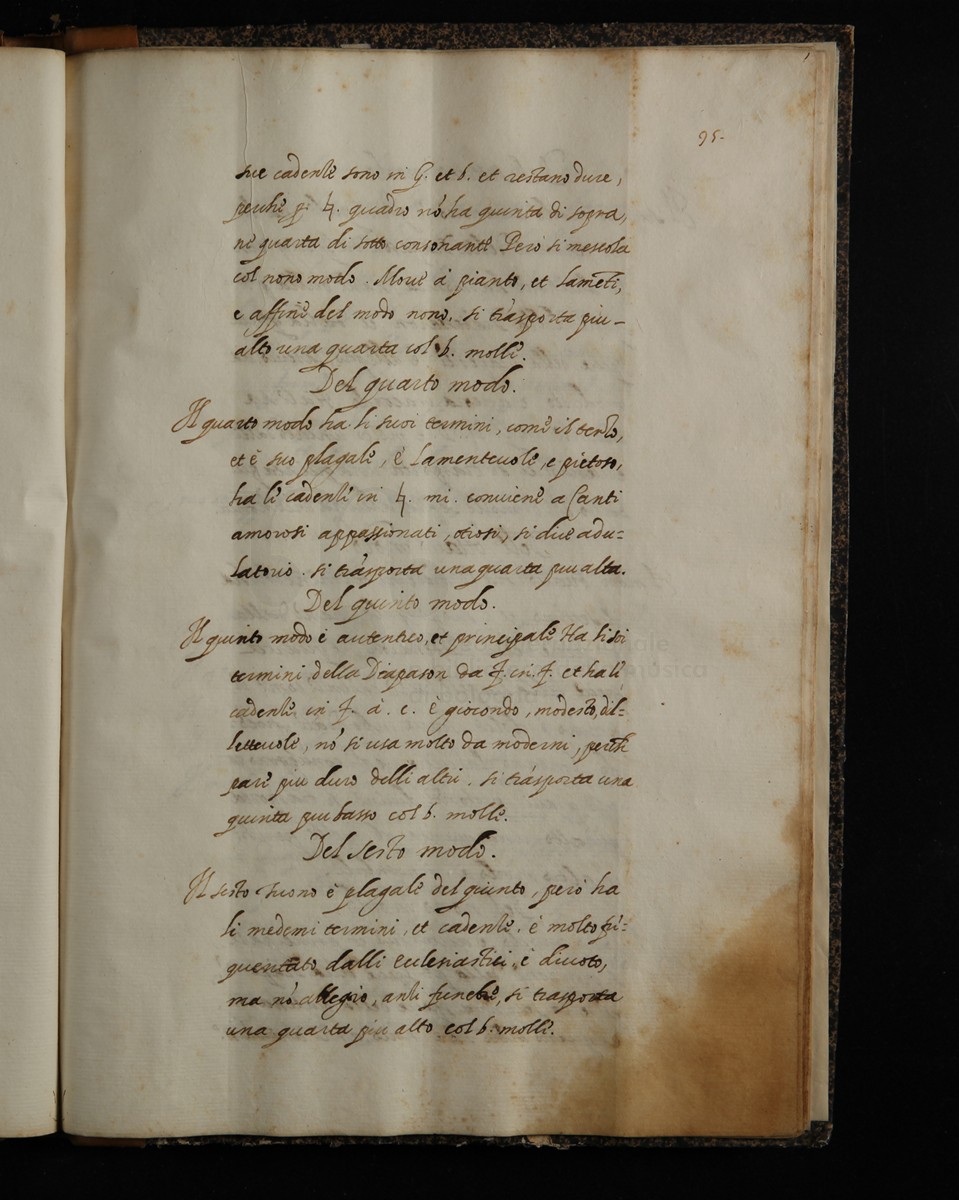 95.
sue cadenze sono in G. et b. et restano dure,
perche p: ♮. quadro nõ ha quinta di sopra,
nè quarta di sotto consonante Però si mescola
col nono modo. Moue à pianto, et lamẽti,
e affine del modo nono, si trãsporta piu
alto una quarta col b. molle.
Del quarto modo.
Il quarto modo ha li suoi termini, come il terzo,
et è suo plagale, è lamenteuole, e pietoso,
ha le cadenze in ♮. mi. conuiene a Canti
amorosi appassionati, otiosi, si dice adu=
latorio. si trãsporta una quarta piu alta.
Del quinto modo.
Il quinto modo è autentico, et principale Ha li soi
termini della Diapason da f. in. f. et ha le
cadenze in f. à. c. è giocondo, modesto, dil=
letteuole, nõ si usa molto da moderni, perche
pare piu duro delli altri. si trãsporta una
quinta piu basso col b. molle.
Del sesto modo.
Il sesto suono è plagale del quinto, però ha
li medemi termini, et cadenze, è molto fre=
quentato dalli eclesiastici, è diuoto,
ma nõ allegro, anzi funebre, si trasporta
una quarta piu alto col b. molle.